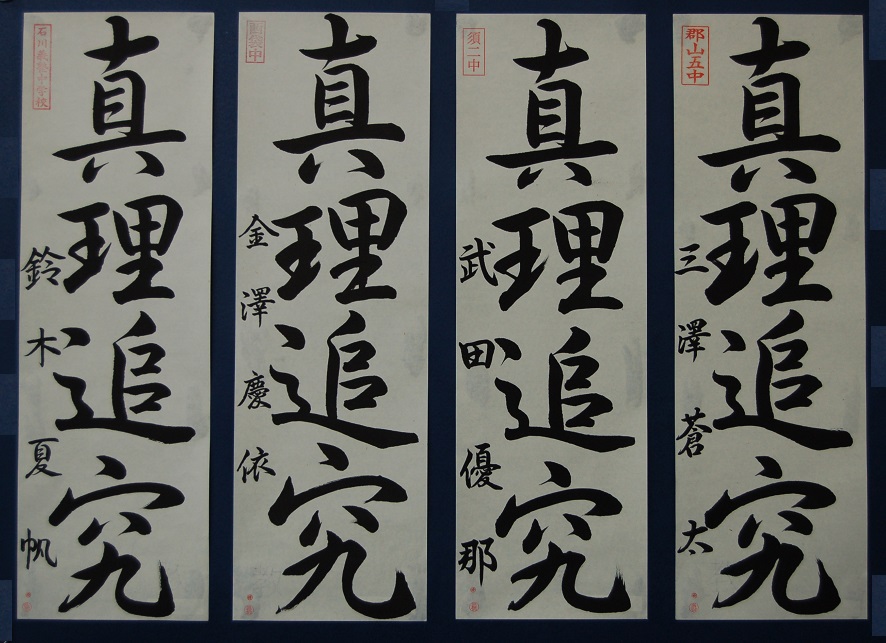 郡山五中
真理追究
三澤蒼太
須二中
真理追究
武田優那
真理追究
金澤慶依
真理追究
鈴木夏帆